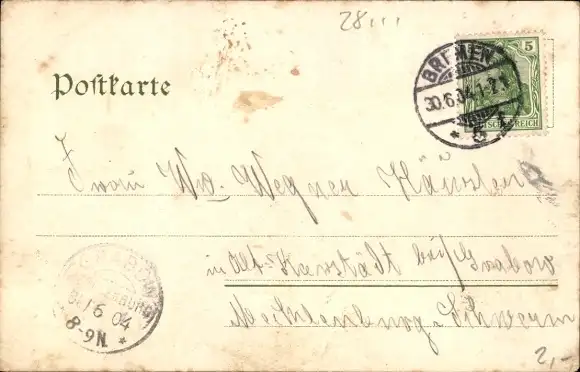 28
Postkarte
5
BREMEN
30.6.04.1-2 N
* 5 f
DEUTSCHES REICH
Frau Ww. Wegner
in Alt- bei/Grabow
Mecklenburg-Schwerin
GRABOW
30/6 04
8-9N. *
2,-